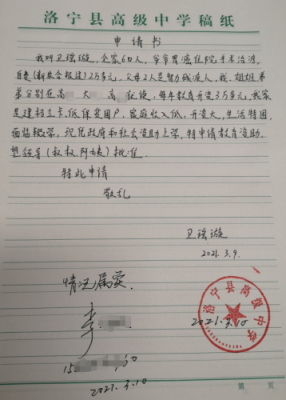 洛宁县高级中学稿纸
申请书
我叫卫瑶璇，全家6口人，爷爷胃癌住院手术治疗，
自费(新农合报过)2万多元，父母2人是努力残疾人，我、姐姐弟
弟分别在高 大 高 就读，每年教育开支3万多元，我家
是建档立卡、低保贫困户，家庭收入低，开支大，生活特困，
面临辍学。祝民政府和社会资助上学，特申请教育资助，
望领导批准.
特此申请
敬礼
卫瑶璇
2021.3.9.
情况属实.
李
15
2021.3.10
洛宁县高级中学
2021.3.10
第 页